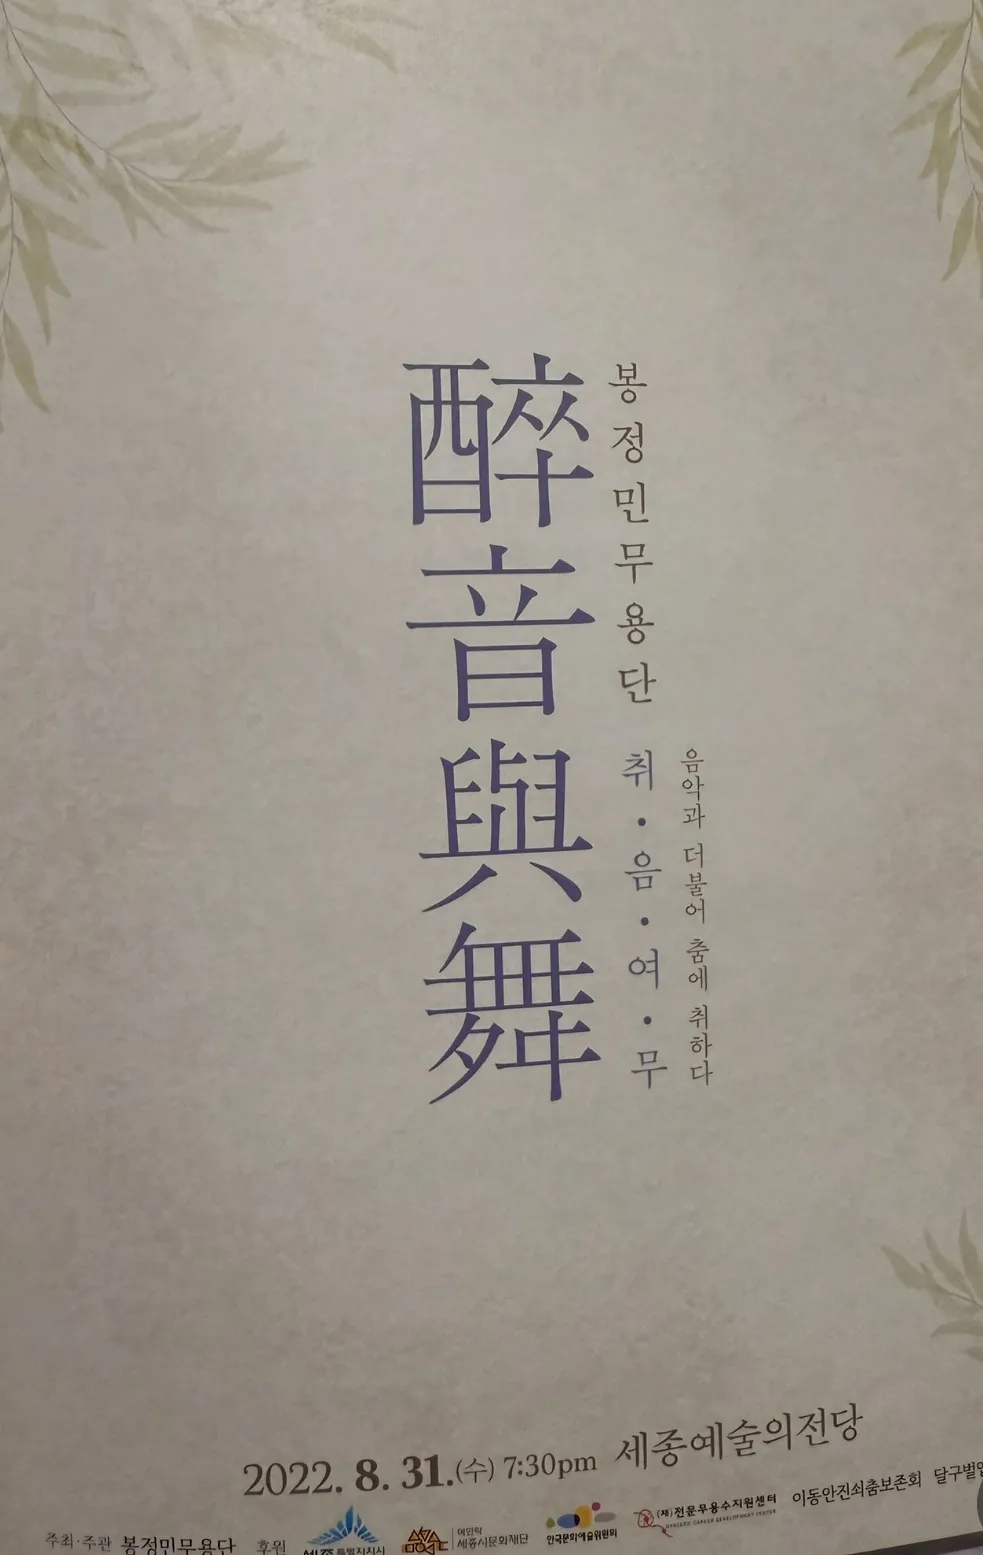 醉音與舞
봉정민무용단
취·음·여·무
음악과 더불어 춤에 취하다
2022. 8. 31.(수) 7:30pm 세종예술의전당
주최·주관 봉정민무용단 후원 세종특별자치시 여민락 세종시문화재단 한국문화예술위원회 (재)전문무용수지원센터 DANCERS' CAREER DEVELOPMENT CENTER 이동안진쇠춤보존회